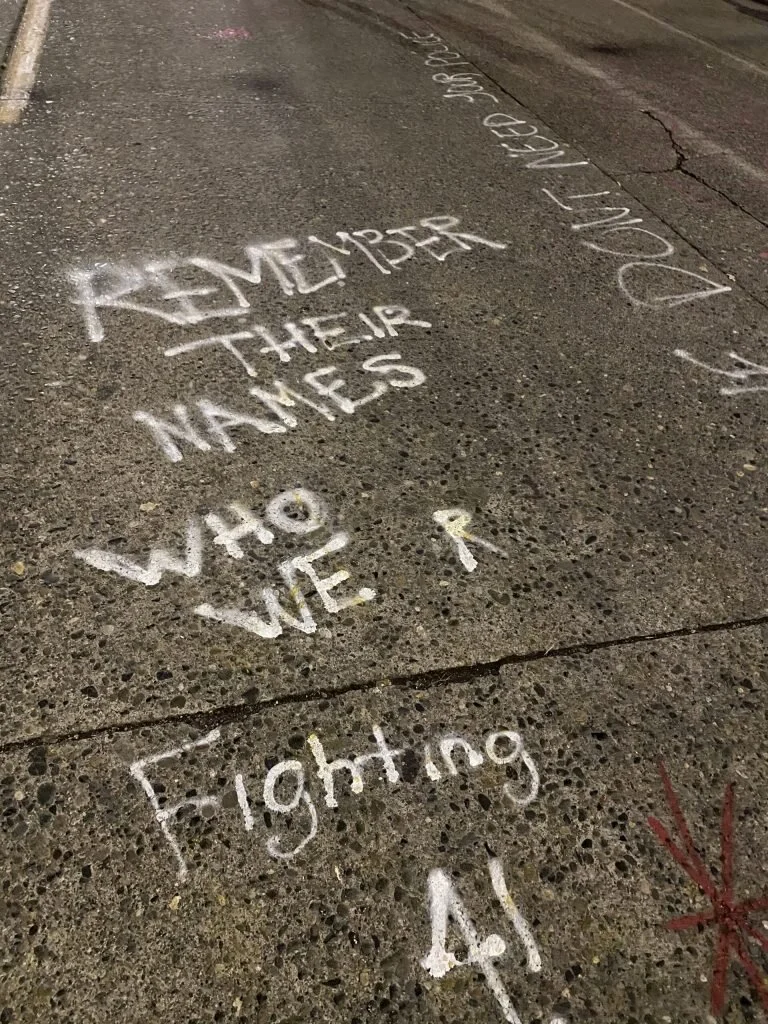 REMEMBER
THEIR
NAMES
WHO
WE R
Fighting
4!
DONT NEED YOUR POLICE